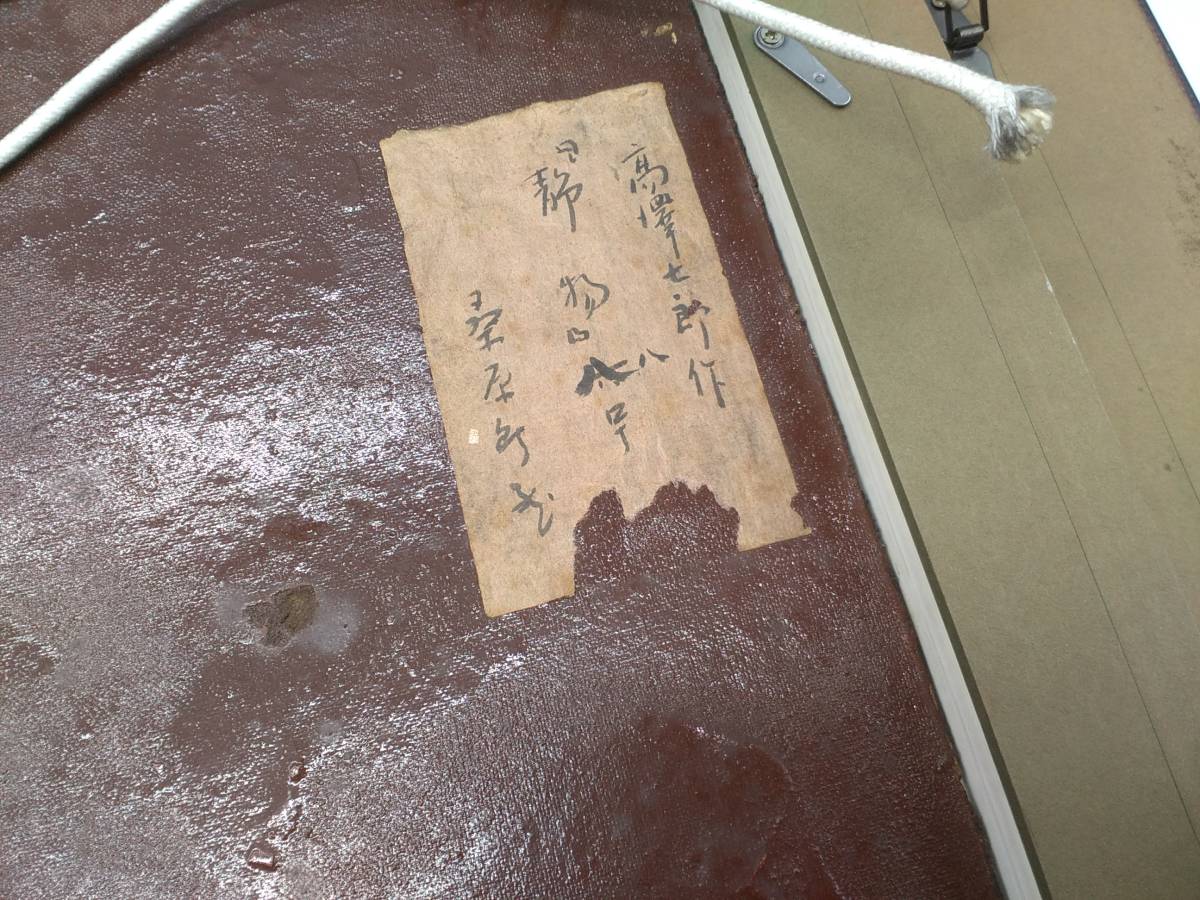 高澤七郎作
「静物」八号
桑原